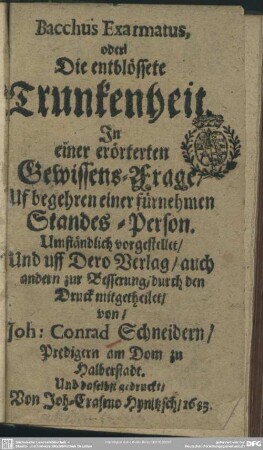 Bacchus Exarmatus,
oder
Die entblössete
Trunkenheit.
In
einer erörterten
Gewissens-Frage/
Uf begehren einer fürnehmen
Standes-Person.
Umständlich vorgestellet/
Und uff Dero Verlag/auch
andern zur Besserung/durch den
Druck mitgetheilet/
von/
Joh: Conrad Schneidern/
Predigern am Dom zu
Halberstadt.
Und daselbst gedruckt/
Von Joh-Erasmo Hynitzsch/1683.